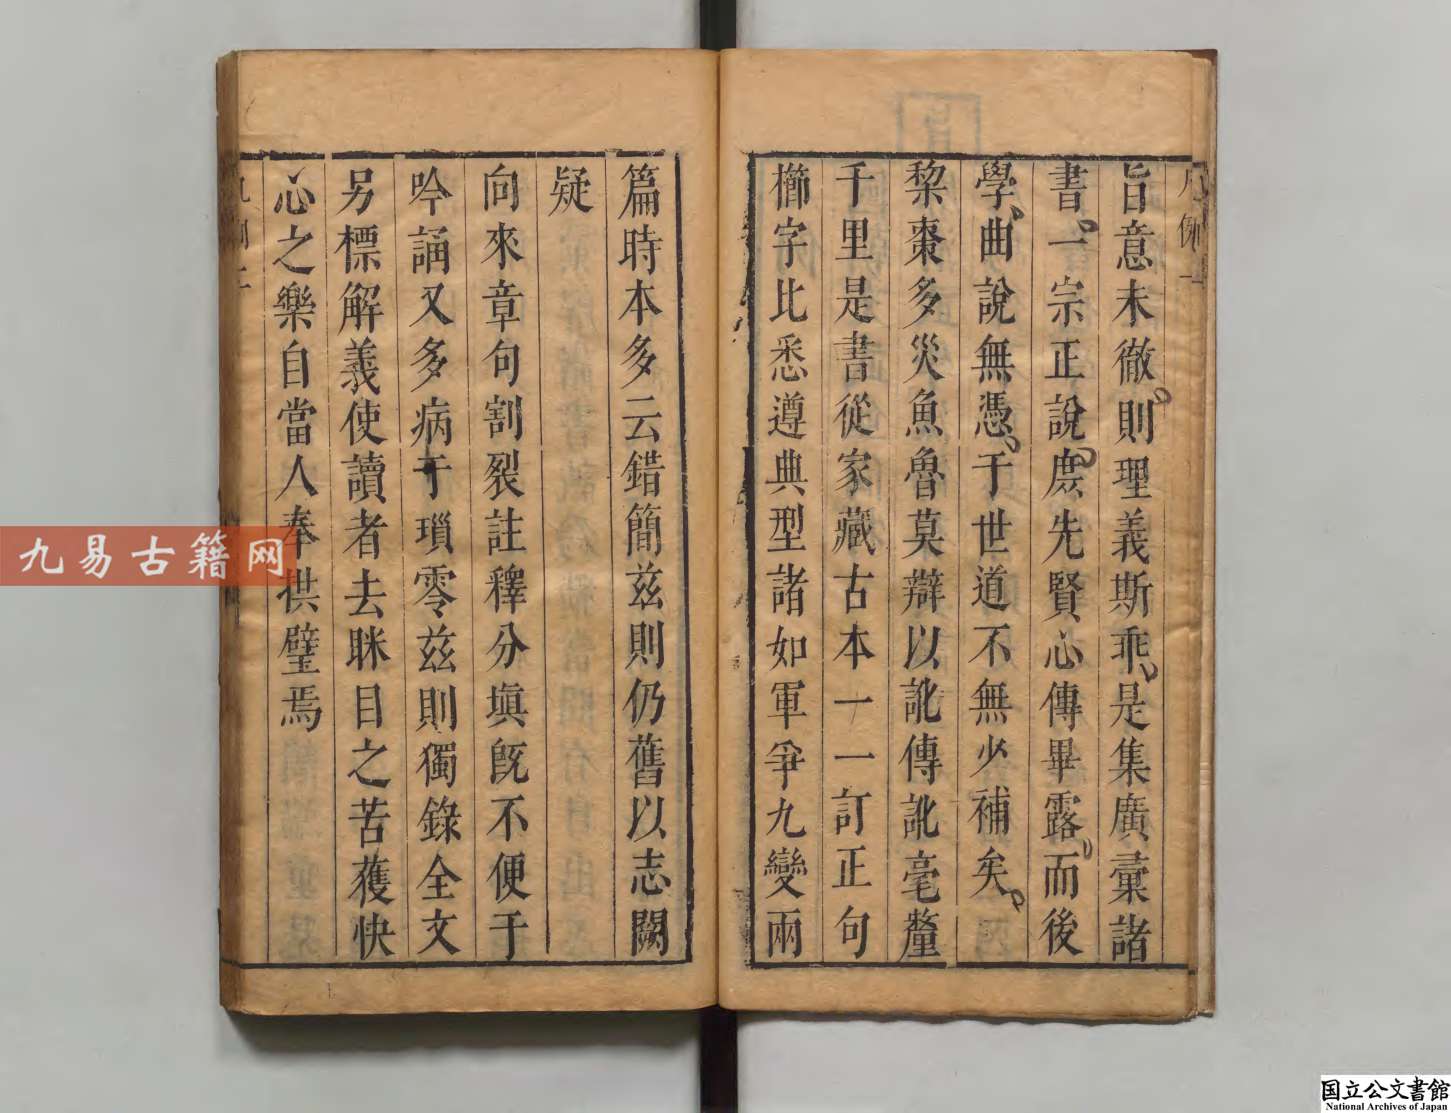 旨意未徹則理義斯乖是集廣彙諸
書一宗正說庶先賢心傳畢露而後
學曲說無憑于世道不無少補矣
棃棗多災魚魯莫辯以訛傳訛毫釐
千里是書從家藏古本一一訂正句
櫛字比悉遵典型諸如軍爭九變兩
篇時本多云錯簡兹則仍舊以志闕
疑
向來章句割裂註釋分塡旣不便于
吟誦又多病于瑣零兹則獨錄全文
另標解義使讀者去眯目之苦蒦快
心之樂自當人奉拱璧焉
九易古籍网
国立公文書館
National Archives of Japan